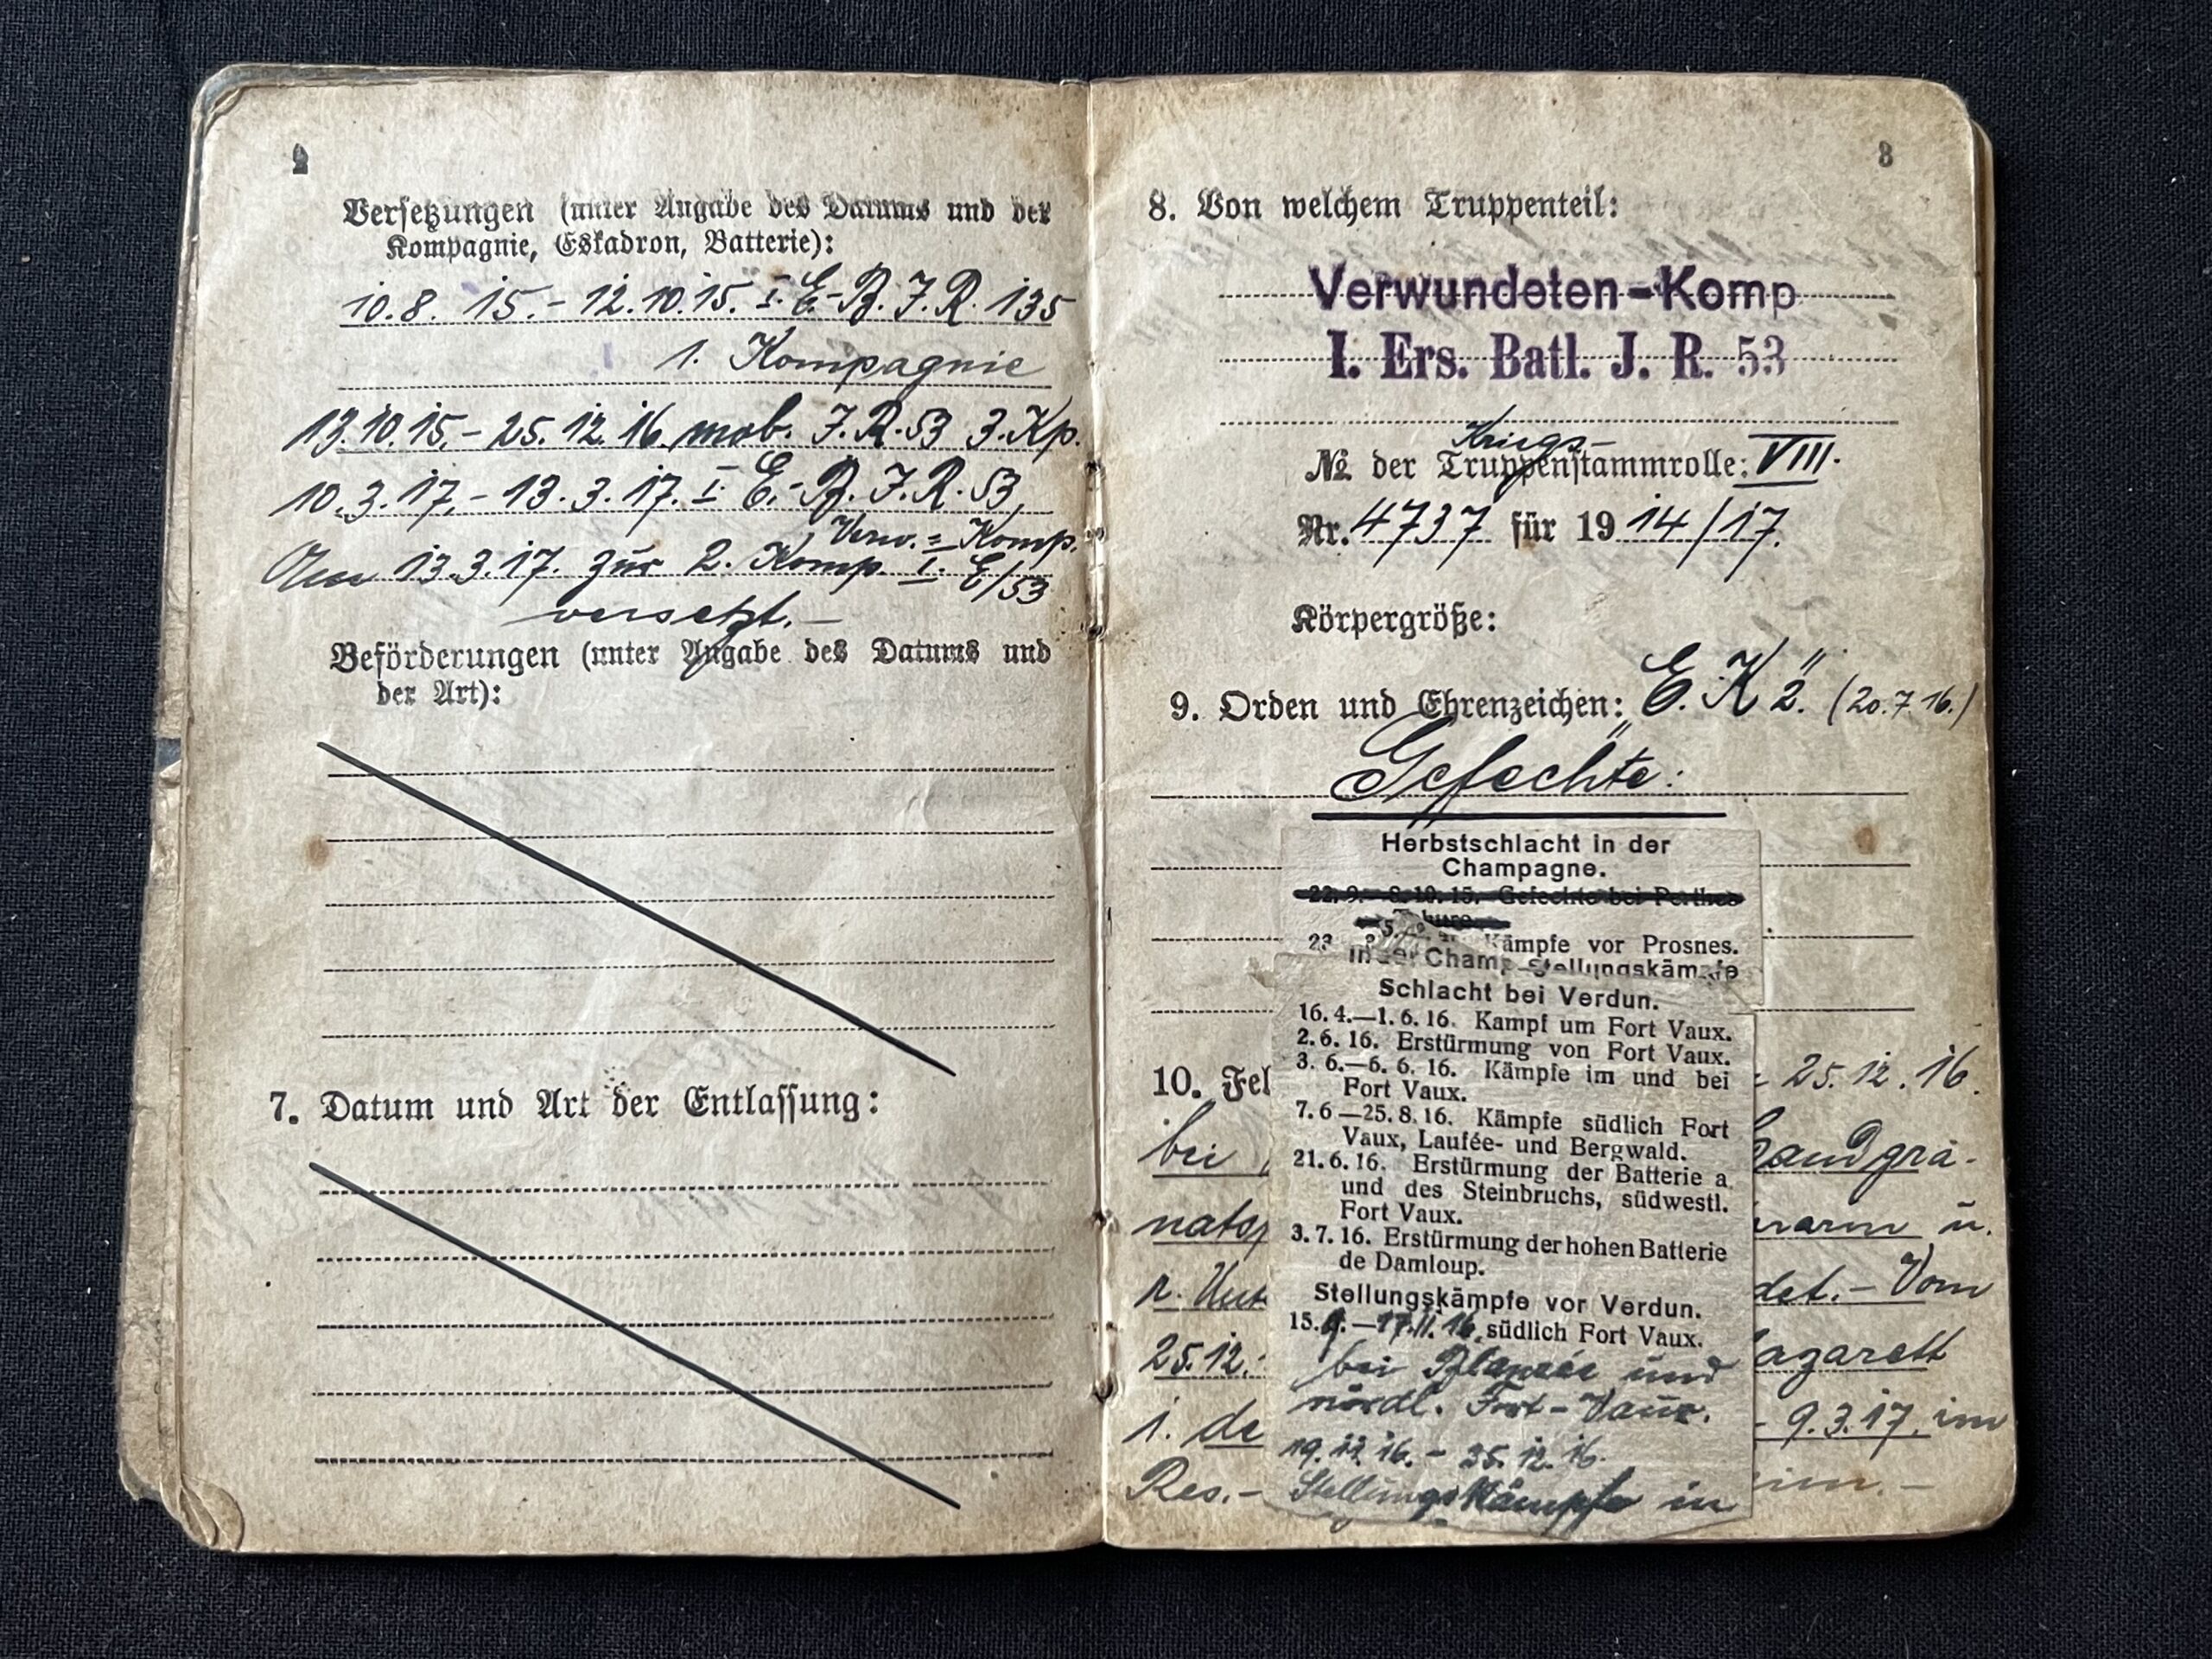 2
Versetzungen (unter Angabe des Datums und der
Kompagnie, Eskadron, Batterie):
10.8. 15.- 12.10.15. I. E.-B. J. R. 135
1. Kompagnie
13.10.15.- 25.12.16. mob. J. R. 53 3. Kp.
10.3.17.- 13.3.17. I. E.-B. J. R. 53,
Verw.= Komp.
Am 13.3.17. zur 2. Komp. I. E/53
versetzt.-
Beförderungen (unter Angabe des Datums und
der Art):
7. Datum und Art der Entlassung:
3
8. Von welchem Truppenteil:
Verwundeten-Komp
I. Ers. Batl. J. R. 53
Kriegs-
№ der Truppenstammrolle: VIII.
Nr. 4737 für 19 14/17.
Körpergröße:
9. Orden und Ehrenzeichen: E. K. 2. (20.7.16.)
Gefechte:
Herbstschlacht in der
Champagne.
22. 9.- 8. 10. 15. Gefechte bei Perthes
23 Kämpfe vor Prosnes.
in der Champ. Stellungskämpfe
Schlacht bei Verdun.
16. 4.—1. 6. 16. Kampf um Fort Vaux.
2. 6. 16. Erstürmung von Fort Vaux.
3. 6.—6. 6. 16. Kämpfe im und bei
Fort Vaux.
7. 6—25. 8. 16. Kämpfe südlich Fort
Vaux, Laufée- und Bergwald.
21. 6. 16. Erstürmung der Batterie a
und des Steinbruchs, südwestl.
Fort Vaux.
3. 7. 16. Erstürmung der hohen Batterie
de Damloup.
Stellungskämpfe vor Verdun.
15. 9.—17.11.16. südlich Fort Vaux.
bei und
nördl. Fort-Vaux.
19.12.16.- 25.12.16.
Stellungskämpfe in
10. Fel 25.12.16.
bei Handgra-
nats narm u.
r. det.- Vom
25.12. Lazarett
i. de - 9.3.17. im
Res.-